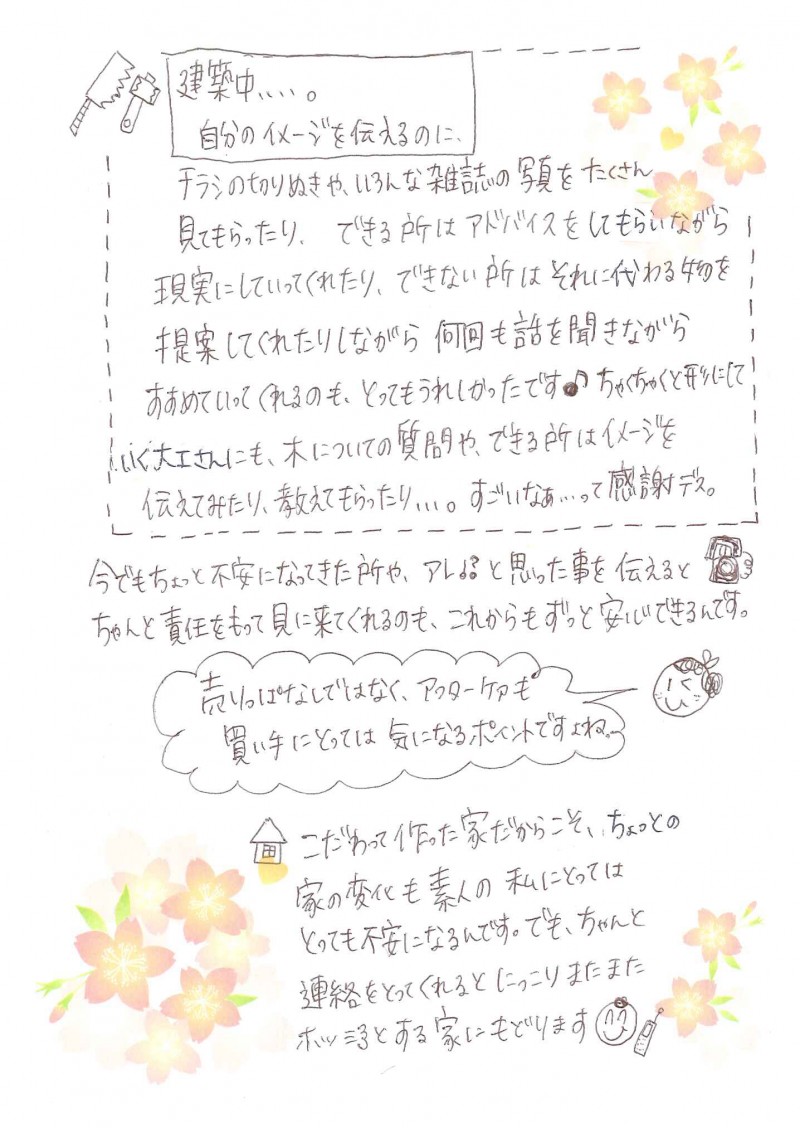 建築中、、、、。
自分のイメージを伝えるのに、
チラシの切りぬきや、いろんな雑誌の写真をたくさん
見てもらったり、できる所はアドバイスをしてもらいながら
現実にしていってくれたり、できない所はそれに代わる物を
提案してくれたりしながら何回も話を聞きながら
すすめていってくれるのも、とってもうれしかったです♪ちゃくちゃくと形にして
いく大工さんにも、木についての質問や、できる所はイメージを
伝えてみたり、教えてもらったり、、、。すごいなぁ…って感謝デス。
今でもちょっと不安になってきた所や、アレ??と思った事を伝えると
ちゃんと責任をもって見に来てくれるのも、これからもずっと安心できるんです。
売りっぱなしではなく、アフターケアも
買い手にとっては気になるポイントですよね。
こだわって作った家だからこそ、ちょっとの
家の変化も素人の私にとっては
とっても不安になるんです。でも、ちゃんと
連絡をとってくれるとにっこりまたまた
ホッとする家にもどります